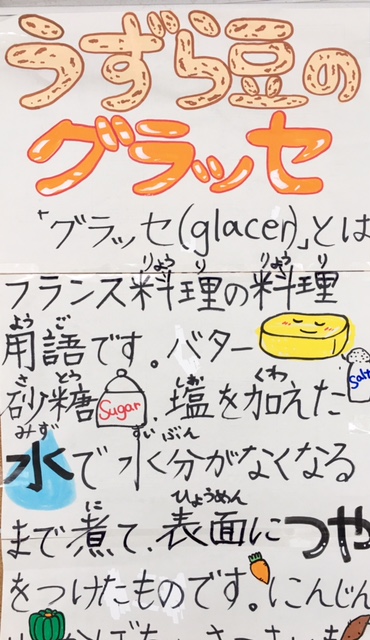 うずら豆の
グラッセ
「グラッセ(glacer)」とは
フランス料理の料理
りょう り りょう り
用語です。バター
よう ご
砂糖 Sugar 、塩を加えた Salt
さ とう しお くわ
水で水分がなくなる
みず すいぶん
まで煮て、表面につや
に ひょうめん
をつけたものです。にんじん